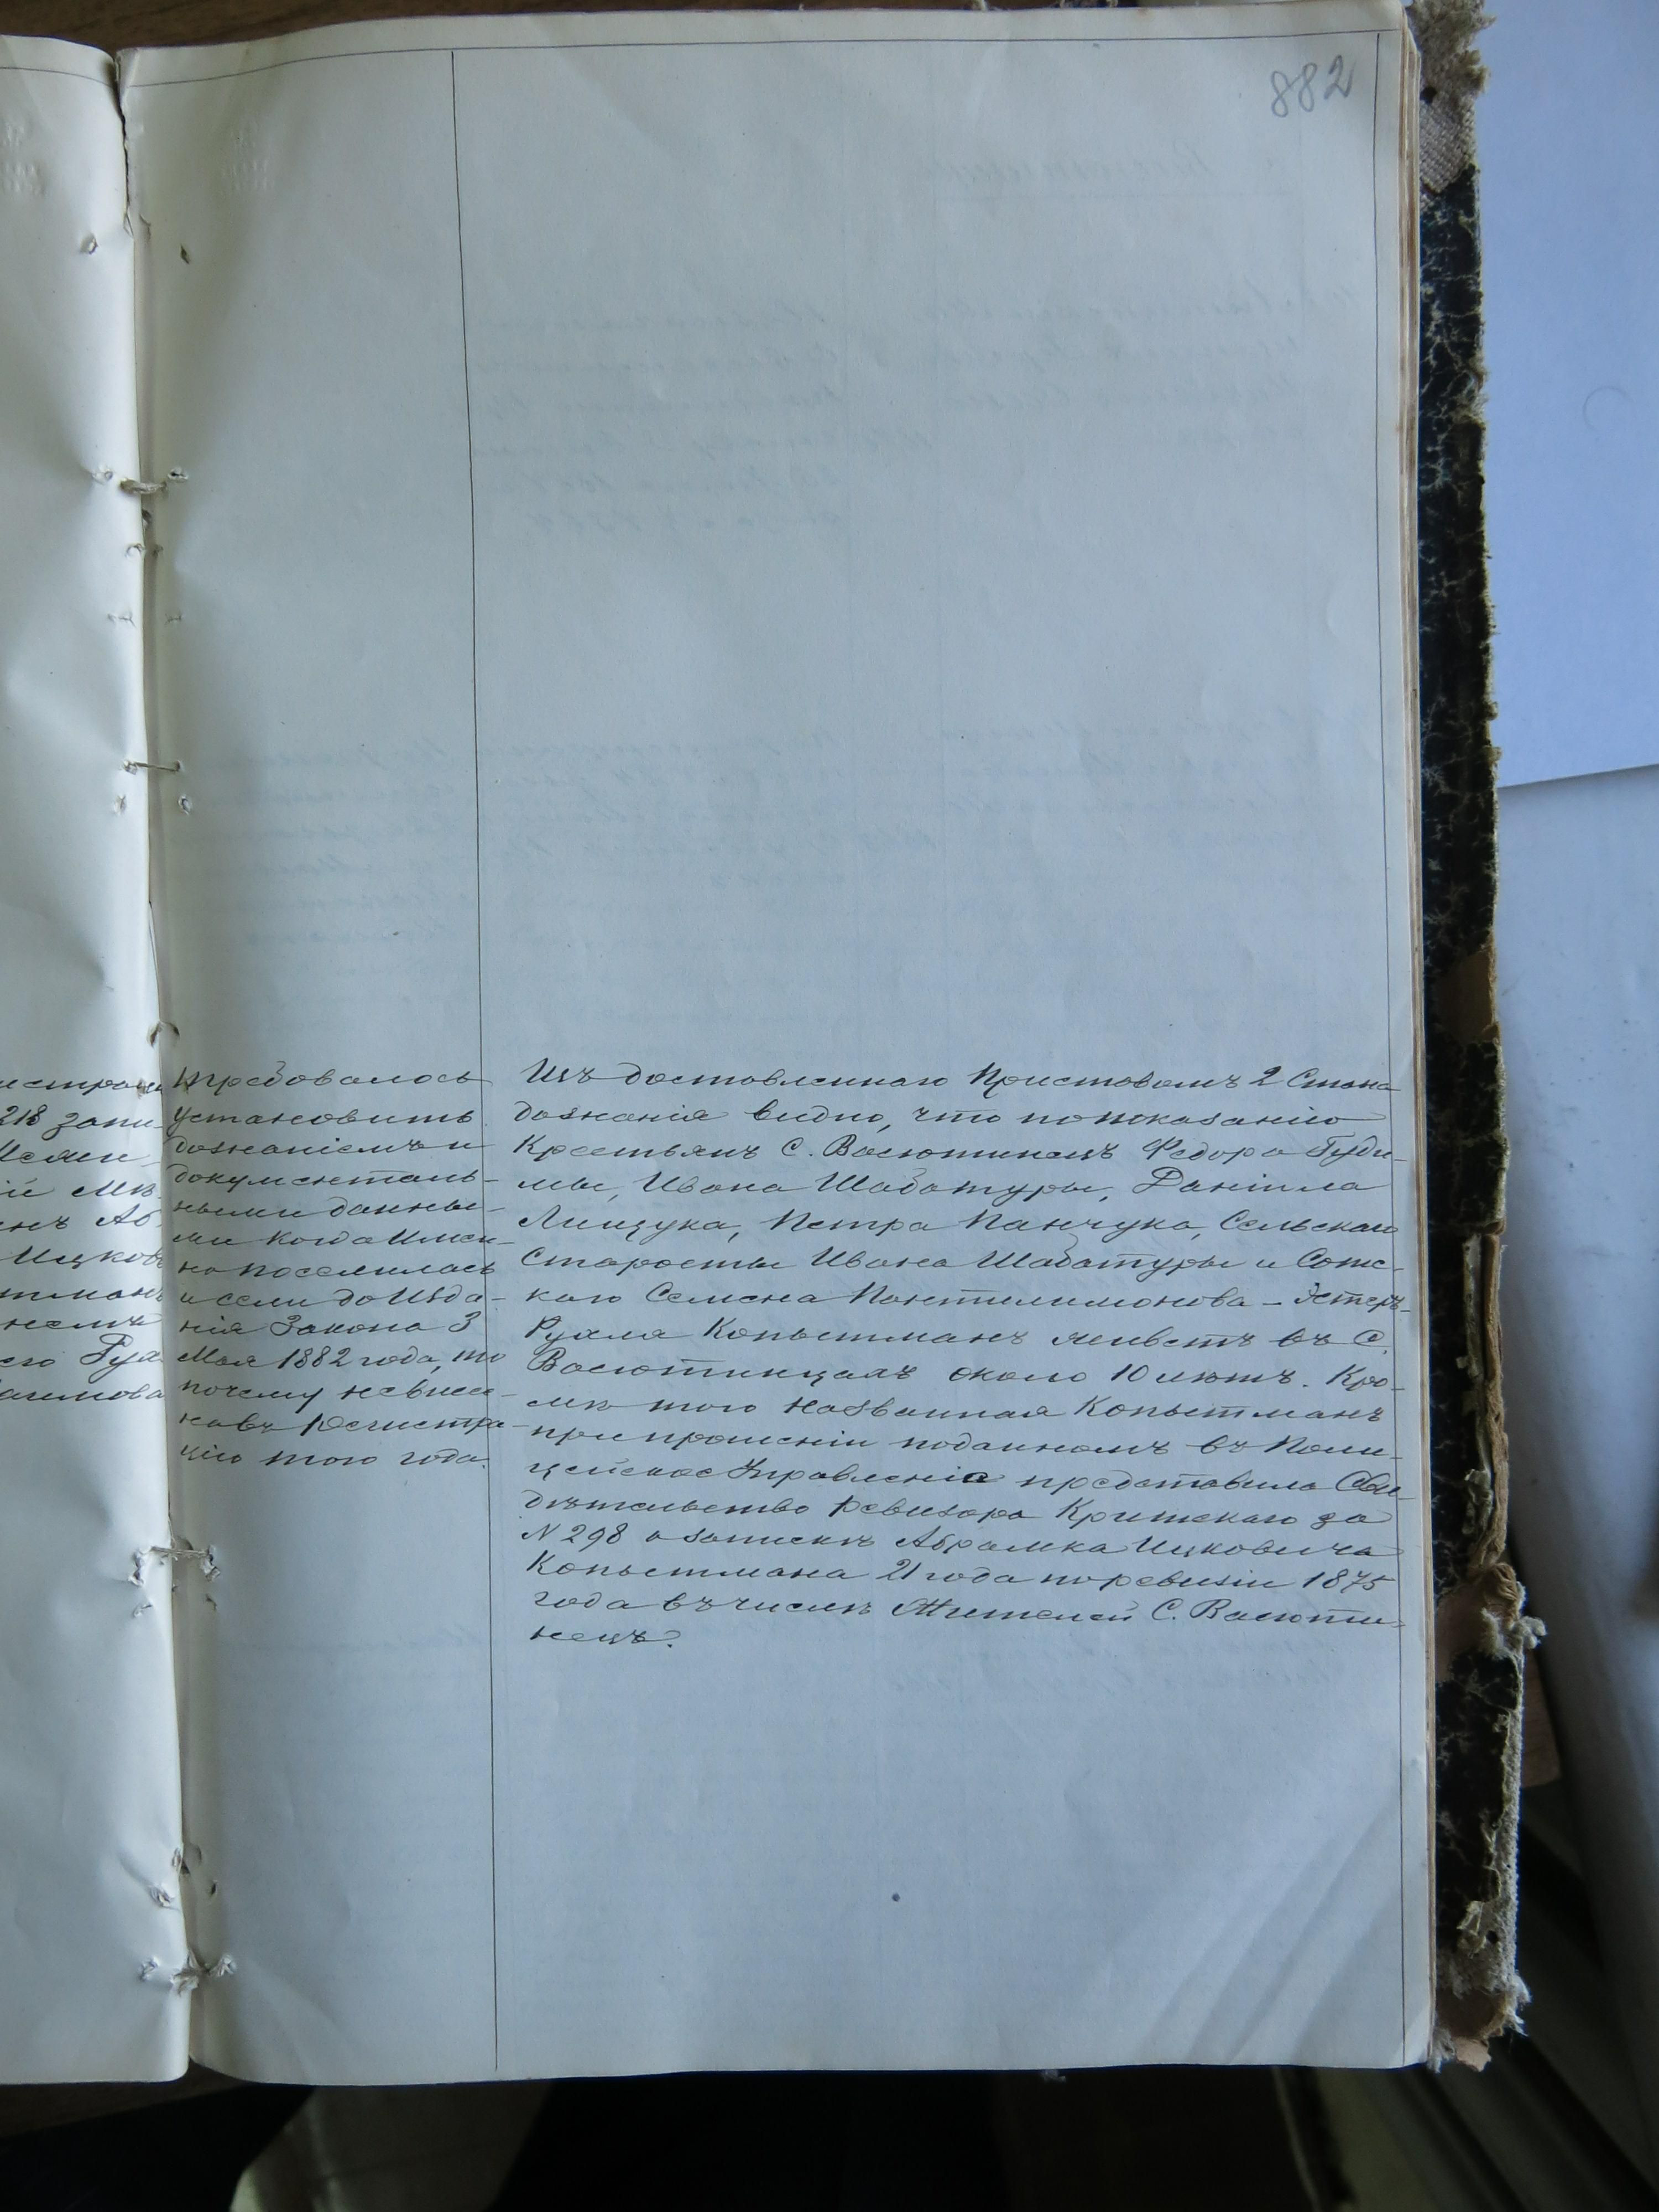 882
218 запи-
Ицков
требовалось
установить
дознаніемъ и
документаль-
ными данны-
ми когда Имен-
но поселилась
и если до Изда-
нія Закона 3
Мая 1882 года, то
почему невнесе-
на въ Регистра-
цію того года.
Изъ доставленнаго Приставомъ 2 Стана
дознанія видно, что по показанію
Крестьянъ С. Васютинецъ Федора Гуди-
мы, Ивана Шабатуры, Даніила
Лищука, Петра Панчука, Сельскаго
Старосты Ивана Шабатуры и Сотс-
каго Семена Пантилимонова – Эстеръ-
Рухля Копытманъ живетъ въ С.
Васютинцахъ около 10 лѣтъ. Кро-
мѣ того названная Копытманъ
при прошеніи поданномъ въ Поли-
цейское Управленіе представила Сви-
дѣтельство Ревизора Критскаго за
N 298 о запискѣ Абрамка Ицковича
Копытмана 21 года по ревизіи 1875
года въ числѣ Жителей С. Васюти-
нецъ.